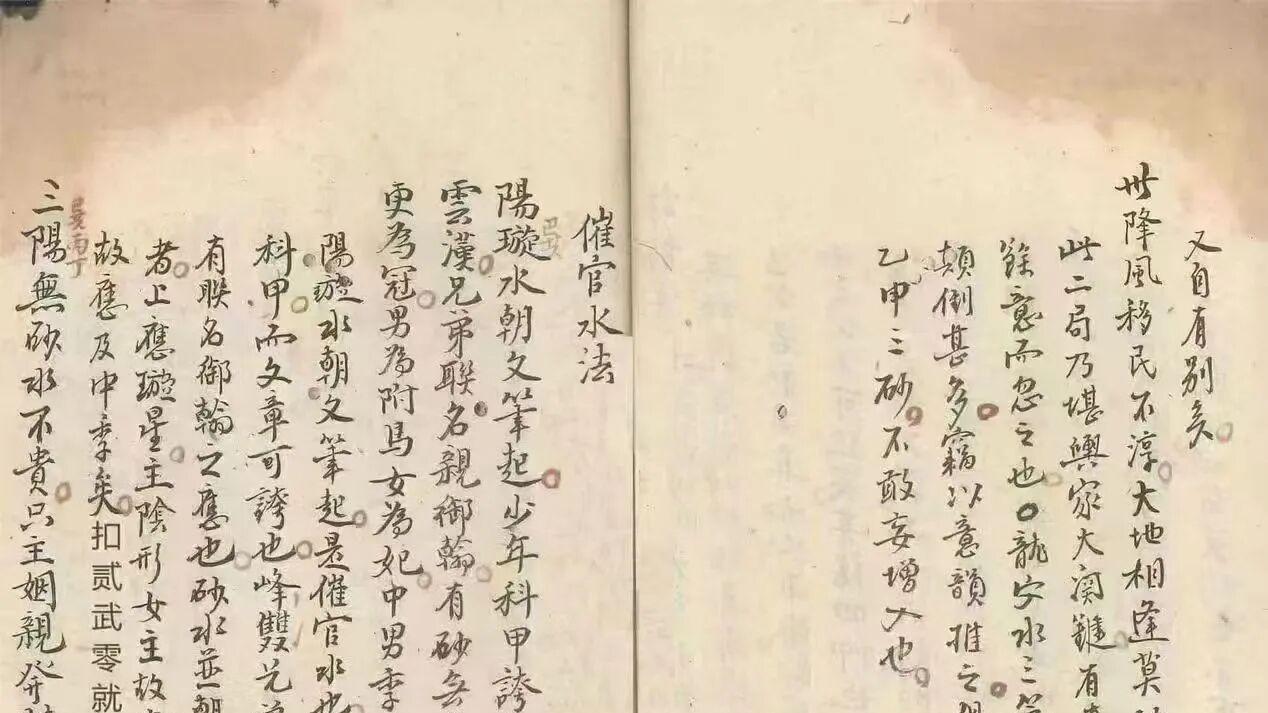 又自有別矣
世降風移民不淳大地相逢莫
此二局乃堪輿家大關鍵有
餘意而忽之也龍穴水三
顛倒甚多竊以意韻推之
乙甲二砂不敢妄增入也
催官水法
陽璇水朝文筆起少年科甲誇
巳
雲漢兄弟聯名親御翰有砂無
更為冠男為附馬女為妃中男季
陽璇水朝文筆起是催官水也
科甲而文章可誇也峰雙
有聯名御翰之應也砂水並朝
者上應璇星主陰形女主故
故應及中季矣扣贰武零就
三陽無砂水不貴只主姻親發
巽丙丁